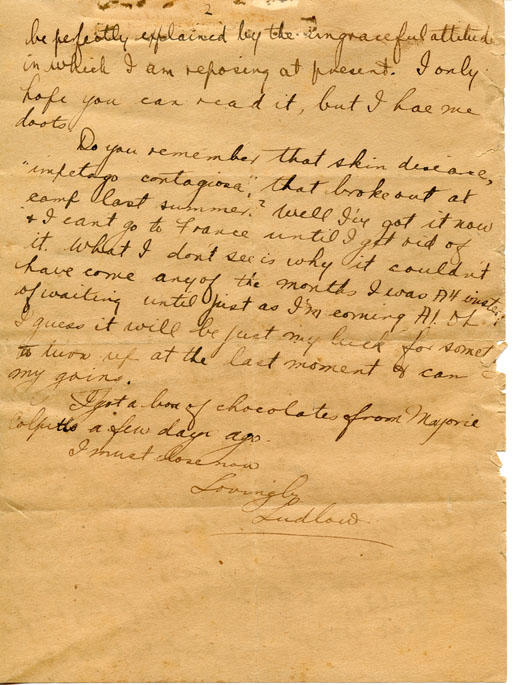 2
be perfectly explained by the ungraceful attitude
in which I am reposing at present. I only
hope you can read it, but I hae me
doots
Do you remember that skin disease,
"impetago contagiosa", that broke out at
camp last summer? Well I've got it now
& I cant go to France until I get rid of
it. What I don't see is why it couldn't
have come any of the months I was A4 instead
of waiting until just as I'm coming A1. Oh
I guess it will be just my luck for somet
to turn up at the last moment & can
my goins.
I got a box of chocolates from Marjorie
Colpitts a few days ago.
I must close now
Lovingly
Ludlow